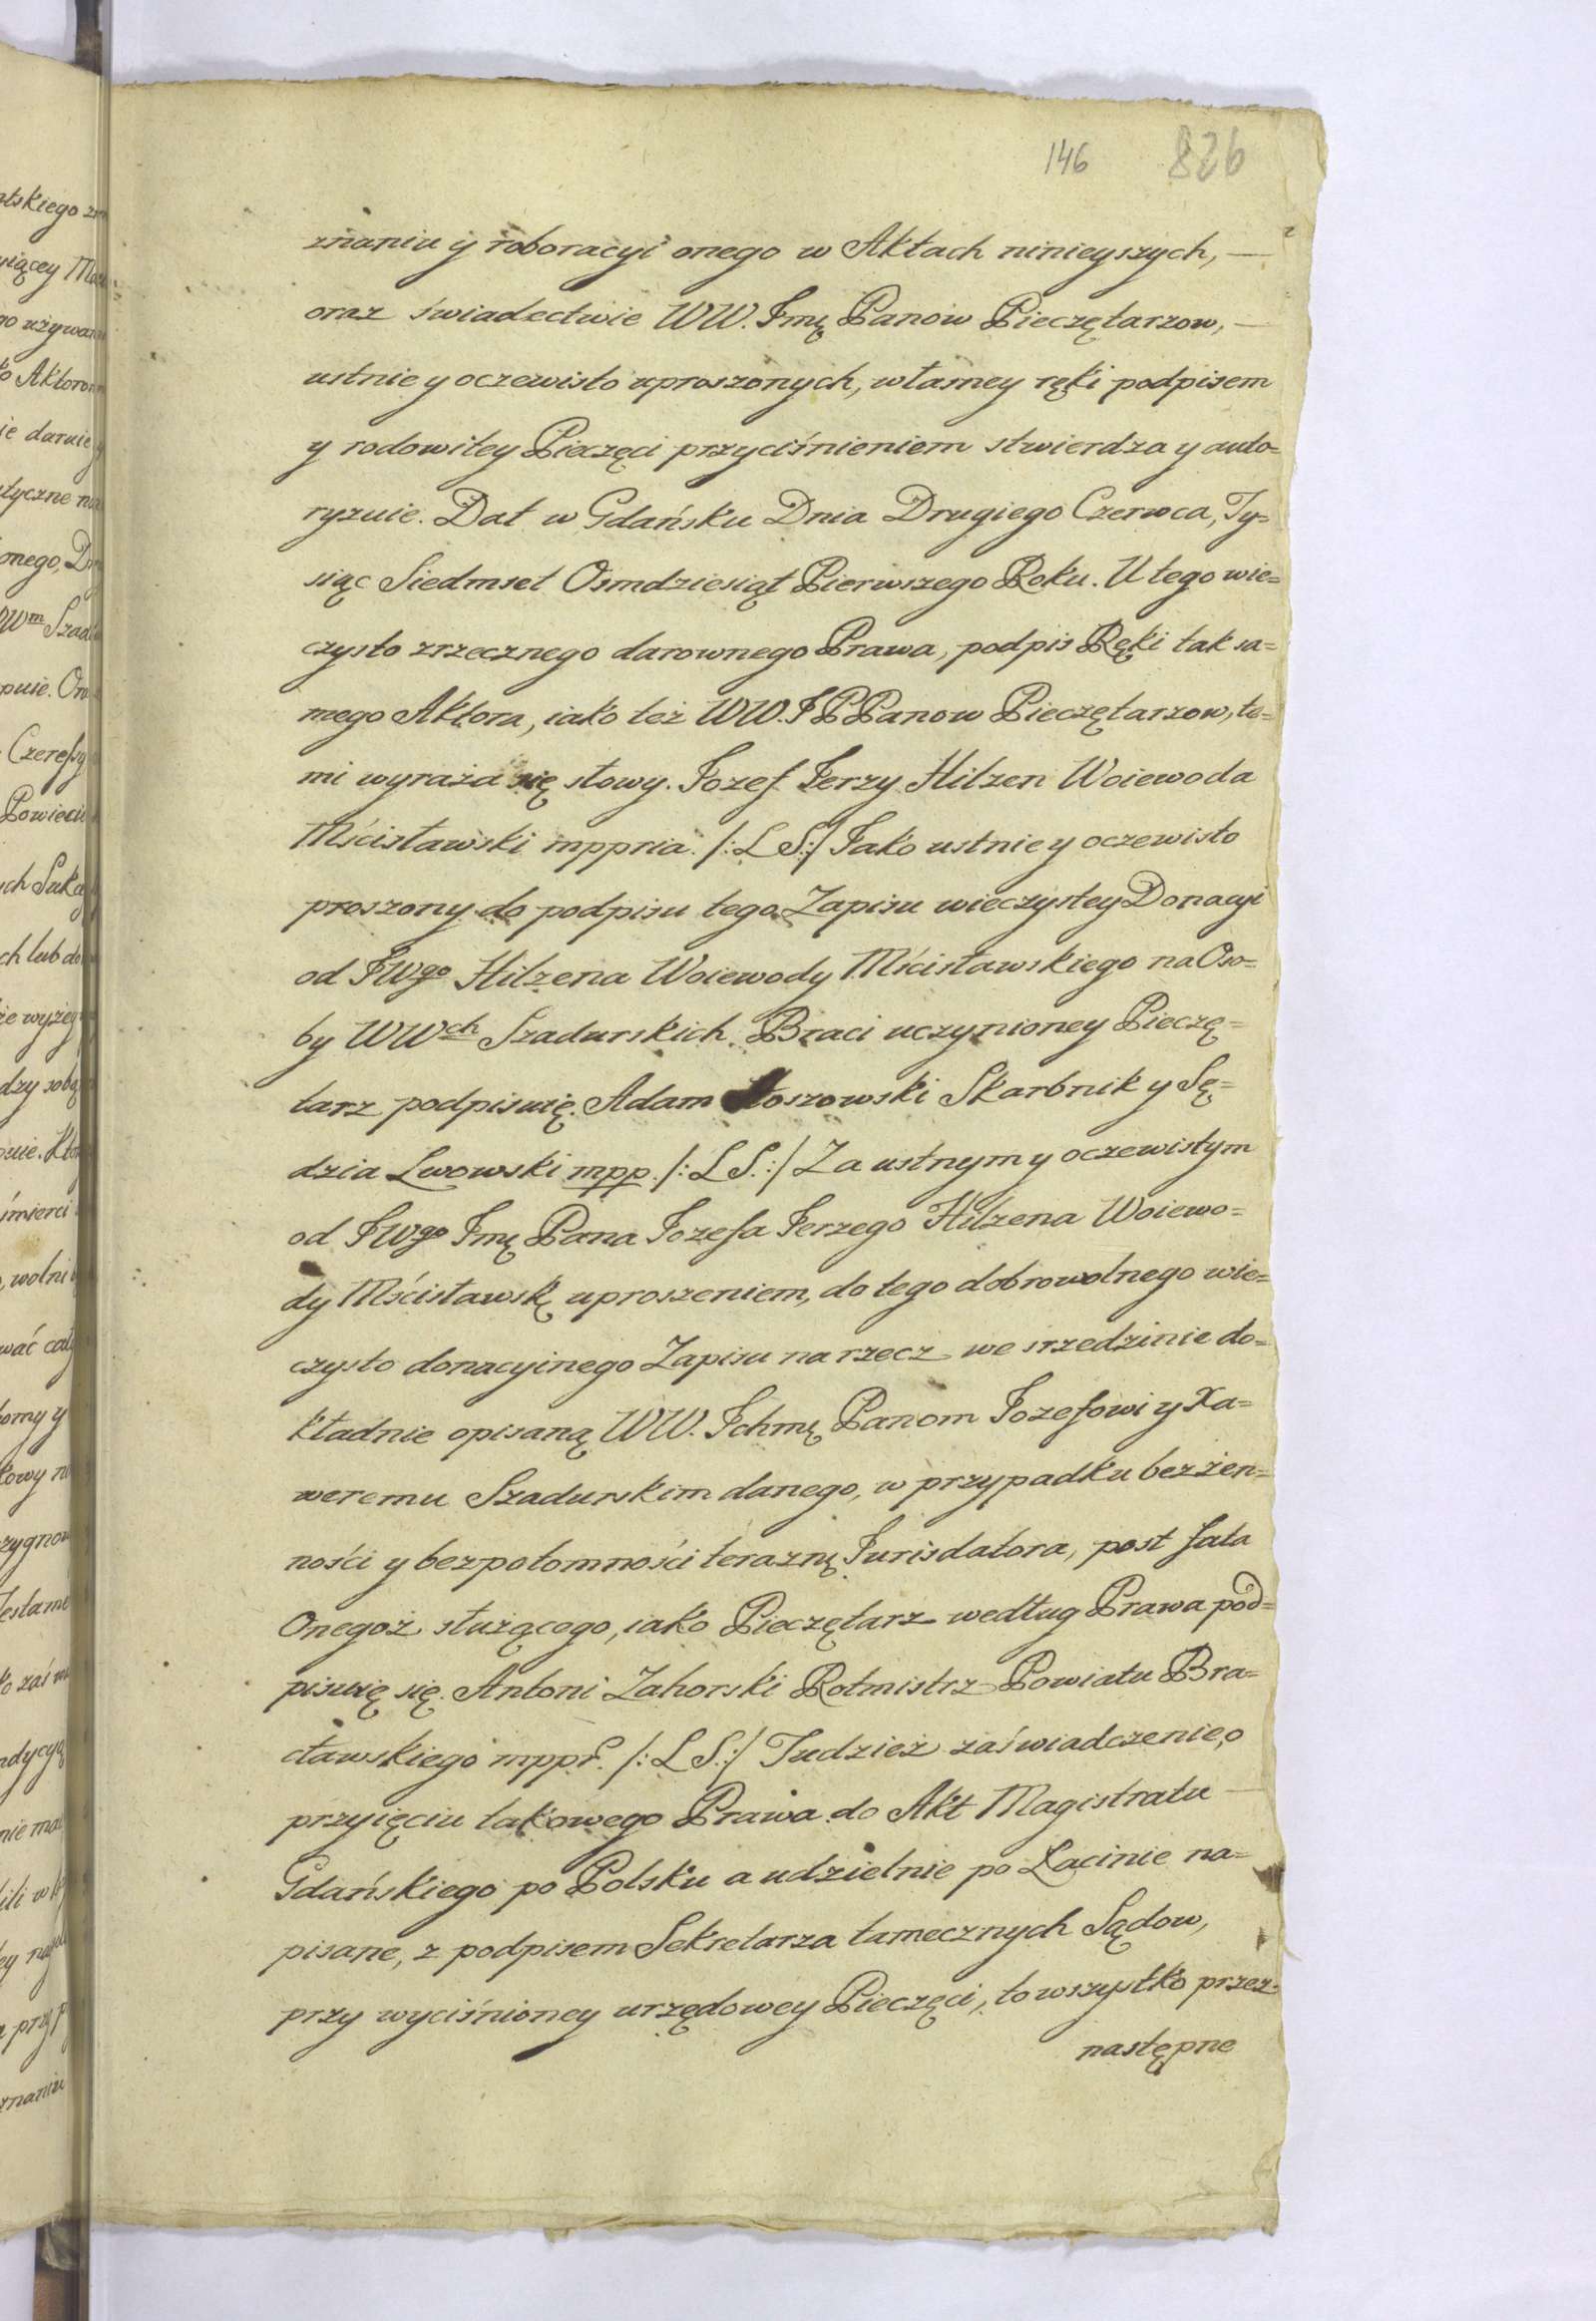 146 826
znaniu y roboracyi onego w Aktach ninieyszych, —
oraz świadectwie WW. Jmę Panow Pieczętarzow, —
ustnie y oczewisto uproszonych, własney ręki podpisem
y rodowitey Pieczęci przyciśnieniem stwierdza y auto=
ryzuie. Dat w Gdańsku Dnia Drugiego Czerwca, Ty=
siąc Siedmset Osmdziesiąt Pierwszego Roku. U tego wie=
czysto zrzecznego darownego Prawa, podpis Ręki tak sa=
mego Aktora, iako też WW. J PPanow Pieczętarzow, te=
mi wyraża się słowy. Jozef Jerzy Hilzen Woiewoda
Mścisławski mppria. /: L S :/ Jako ustnie y oczewisto
proszony do podpisu tego Zapisu wieczystey Donacyi
od JWgo Hilzena Woiewody Mścisławskiego na Oso=
by WWch Szadurskich Braci uczynioney Pieczę=
tarz podpisuię. Adam Łoszowski Skarbnik y Sę=
dzia Lwowski mpp. /: L S. :/ Za ustnym y oczewistym
od JWgo Jmę Pana Jozefa Jerzego Hilzena Woiewo=
dy Mścisławskę uproszeniem, do tego dobrowolnego wie=
czysto donacyinego Zapisu na rzecz we srzedzinie do=
kładnie opisaną WW. Jchmę Panom Jozefowi y Xa=
weremu Szadurskim danego, w przypadku bezżen=
ności y bezpotomności teraznę Jurisdatora, post fata
Onegoż służącego, iako Pieczętarz według Prawa pod=
pisuię się. Antoni Zahorski Rotmistrz Powiatu Bra=
cławskiego mppr. /: L S. :/ Tudzież zaświadczenie, o
przyięciu takowego Prawa do Akt Magistratu —
Gdańskiego po Polsku a udzielnie po Łacinie na=
pisane, z podpisem Sekretarza tamecznych Sądow,
przy wyciśnioney urzędowey Pieczęci, to wszystko przez
następne